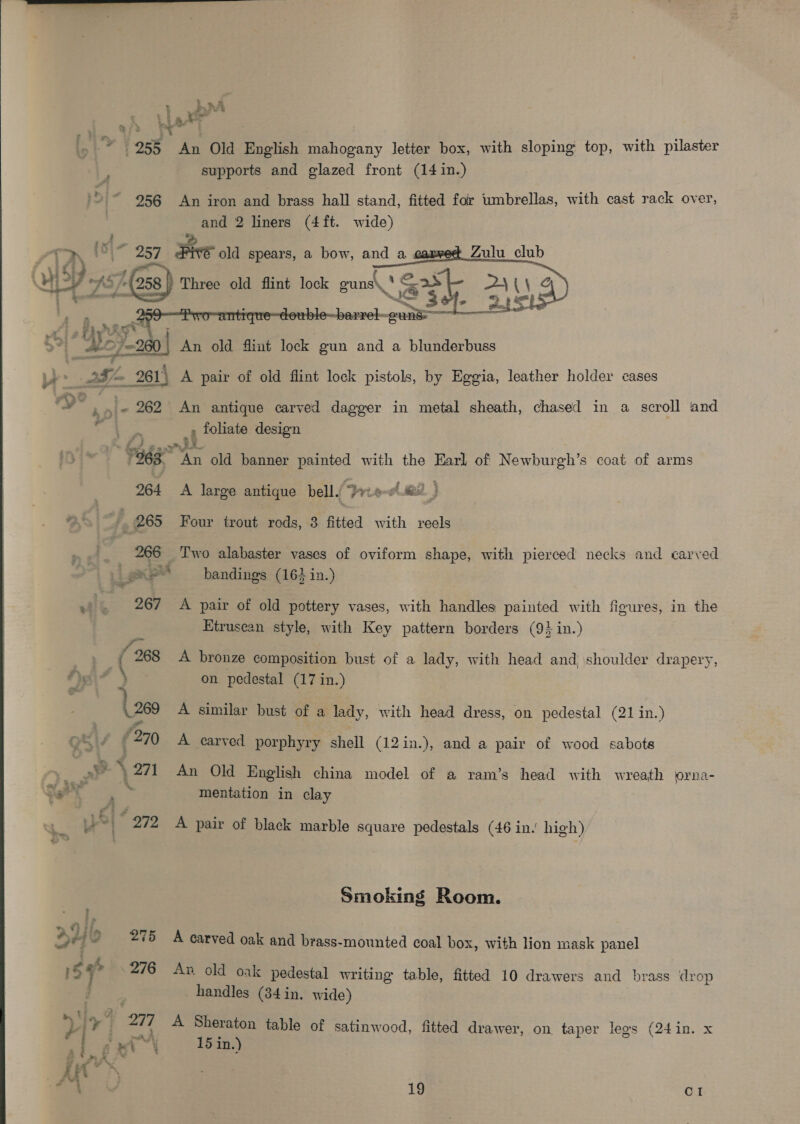 255 An Old English mahogany letter box, with sloping top, with pilaster
supports and glazed front (14 in.)
256 An iron and brass hall stand, fitted for umbrellas, with cast rack over,
and 2 liners (4 ft. wide)
257 Five old spears, a bow, and a carved Zulu club
258 Three old flint lock guns
259 Two antique double-barrel guns
260 An old flint lock gun and a blunderbuss
261 A pair of old flint lock pistols, by Eggia, leather holder cases
262 An antique carved dagger in metal sheath, chased in a scroll and
foliate design
263 An old banner painted with the Earl of Newburgh's coat of arms
264 A large antique bell
265 Four trout rods, 3 fitted with reels
266 Two alabaster vases of oviform shape, with pierced necks and carved
bandings (16½ in.)
267 A pair of old pottery vases, with handles painted with figures, in the
Etruscan style, with Key pattern borders (9½ in.)
268 A bronze composition bust of a lady, with head and shoulder drapery,
on pedestal (17 in.)
269 A similar bust of a lady, with head dress, on pedestal (21 in.)
270 A carved porphyry shell (12 in.), and a pair of wood sabots
271 An Old English china model of a ram's head with wreath orna-
mentation in clay
272 A pair of black marble square pedestals (46 in. high)
Smoking Room.
275 A carved oak and brass-mounted coal box, with lion mask panel
276 An old oak pedestal writing table, fitted 10 drawers and brass drop
handles (34 in. wide)
277 A Sheraton table of satinwood, fitted drawer, on taper legs (24 in. x
15 in.)
19 C I